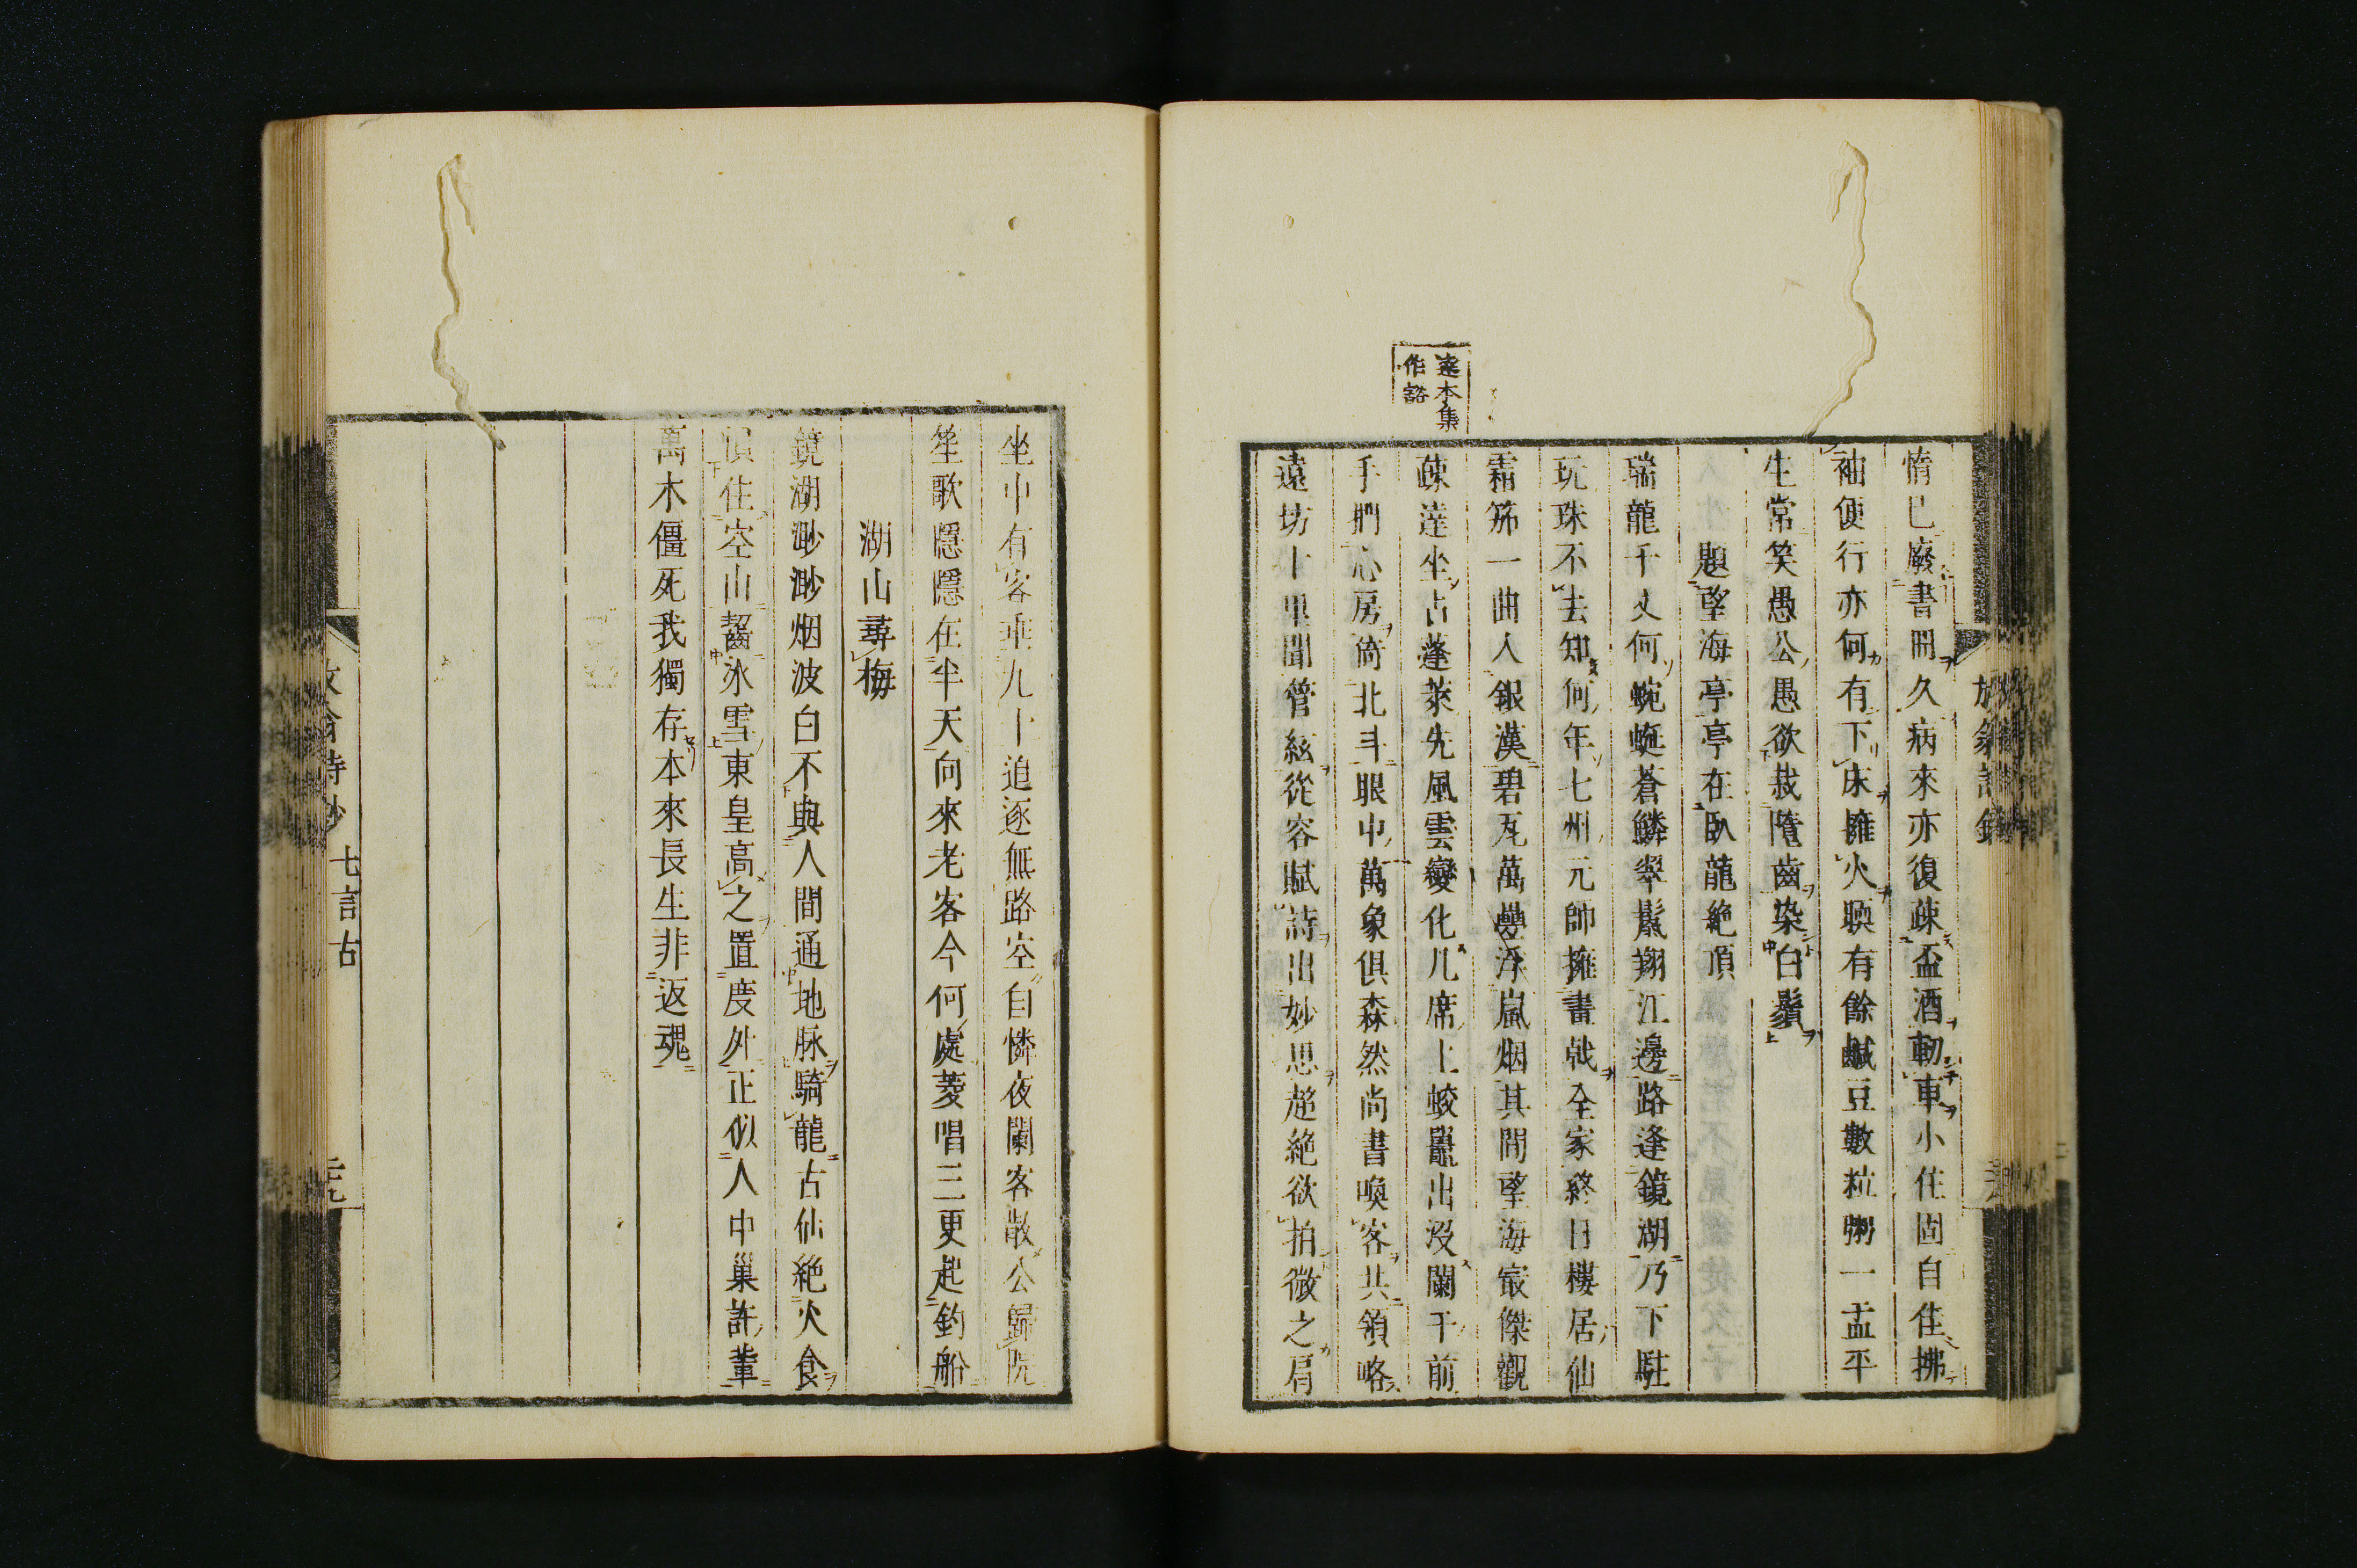 惰已廢書冊久病來亦復疎盃酒軔車小住固自佳拂
袖便行亦何有下床擁火暝有餘鹹豆數粒粥一盂平
生常笑愚公愚欲栽隋齒染白鬚
題望海亭亭在臥龍絶頂
瑞龍千丈何蜿蜒蒼鱗翠鬣翔江邊路逢鏡湖乃下駐
玩珠不去知何年七州元帥擁畫戟全家終日樓居仙
霜笫一曲人銀漢碧瓦萬疊浮嵐烟其間望海寂傑觀
疎達坐占蓬萊先風雲變化几席上蛟鼉出沒闌干前
手捫心房倚北斗眼中萬象俱森然尚書喚客共領略
遠坊十里聞管絃從容賦詩出妙思超絶欲拍微之肩
達本集
作豁
坐中有客垂九十追逐無路空自憐夜闌客散公歸院
笙歌隱隱在半天向來老客今何處菱唱三更起釣船
湖山尋梅
鏡湖渺渺烟波白不與人間通地脉騎龍古仙絶火食
慣住空山齧氷雪東皇高之置度外正似人中巢許輩
萬木僵死我獨存本來長生非返魂
七言古